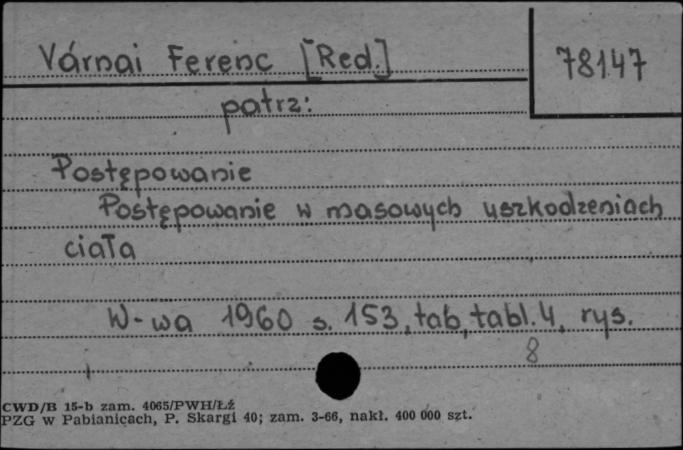 Várnai Ferenc [Red.]
78147
patrz:
Postępowanie
Postępowanie w masowych uszkodzeniach
ciała
W-wa 1960 s. 153, tab, tabl. 4, rys.
8
CWD/B 15-b zam. 4065/PWH/Łź
PZG w Pabianicach, P. Skargi 40; zam. 3-66, nakł. 400 000 szt.